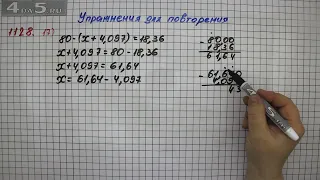 4DA5.RU
Упражнения для повторения
1128. 17)
80-(x+4,097)=18,36
x+4,097=80-18,36
x+4,097=61,64
x=61,64-4,097
- 8000
18,36
61,64
- 61,640
4,09
43